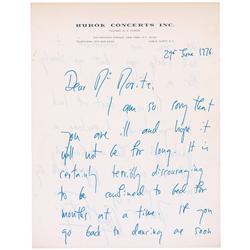 HUROK CONCERTS INC.
29th June 1976.
Dear Mr
I am so sorry that
you are ill and hope it
will not be for long. It is
certainly terribly discouraging
to be confined to bed for
months at a time. If you
go back to dancing as soon